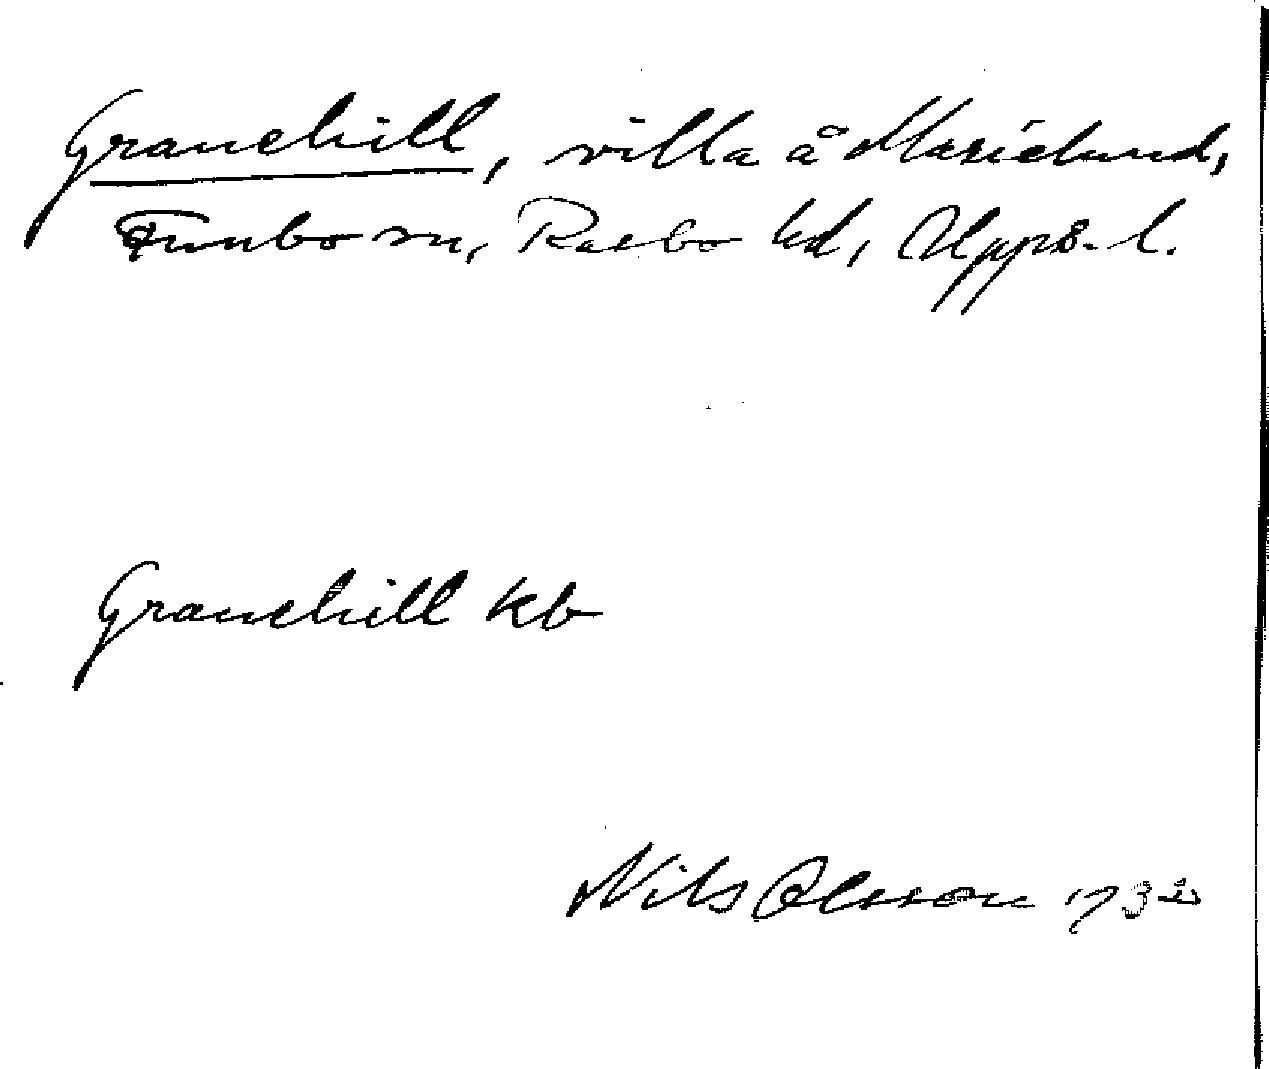 Granehill, villa å Marielund,
Funbo sn, Rasbo hd, Upps. l.
Granehill kb
Nils Olsson 1932